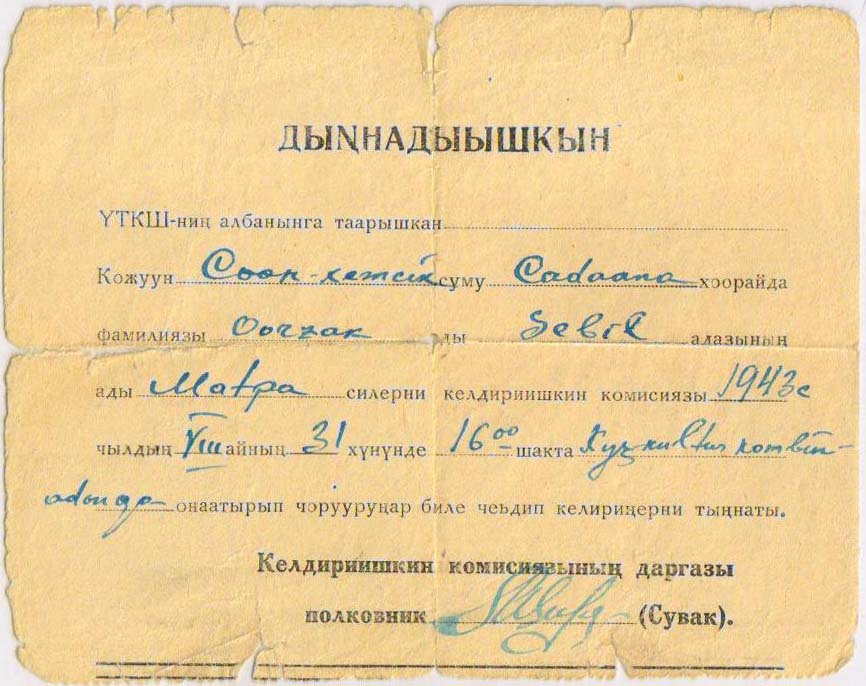 ДЫҢНАДЫЫШКЫН
ҮТКШ-ниң албанынга таарышкан
Кожуун Cөөn-xemcik суму Cadaana хоорайда
фамилиязы Oorzak ды Sebil адазының
ады Matpa силерни келдириишкин комисиязы 1943 c
чылдың VIII айның 31 хүнүнде 16 00 шакта kultur kombin-
adonga онаатырып чорууруңар биле чеьдип келириңерни тыңнаты.
Келдириишкин комисиязының даргазы
полковник (Сувак).